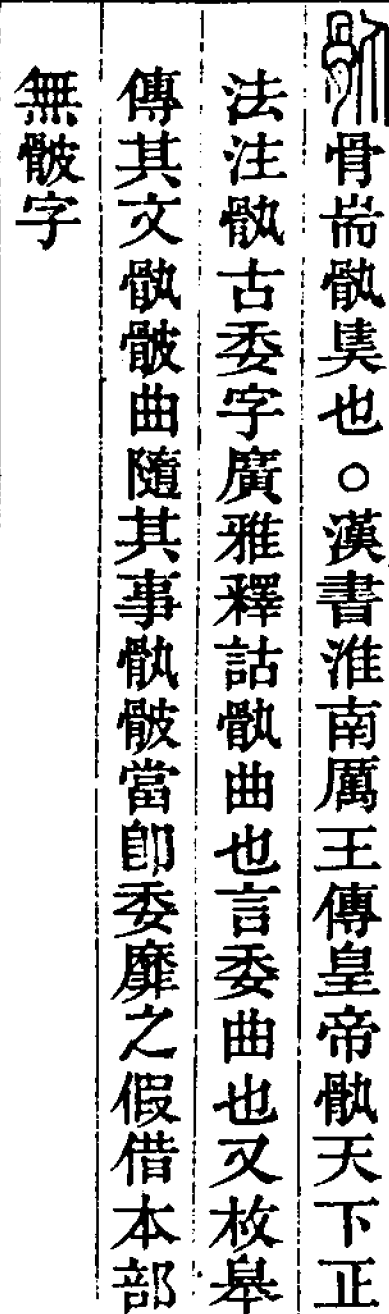 骫骨耑骫奊也○漢書淮南厲王傳皇帝骫天下正
法注骫古委字廣雅釋詁骫曲也言委曲也又枚皋
傳其文骫骳曲隨其事骫骳當卽委靡之假借本部
無骳字